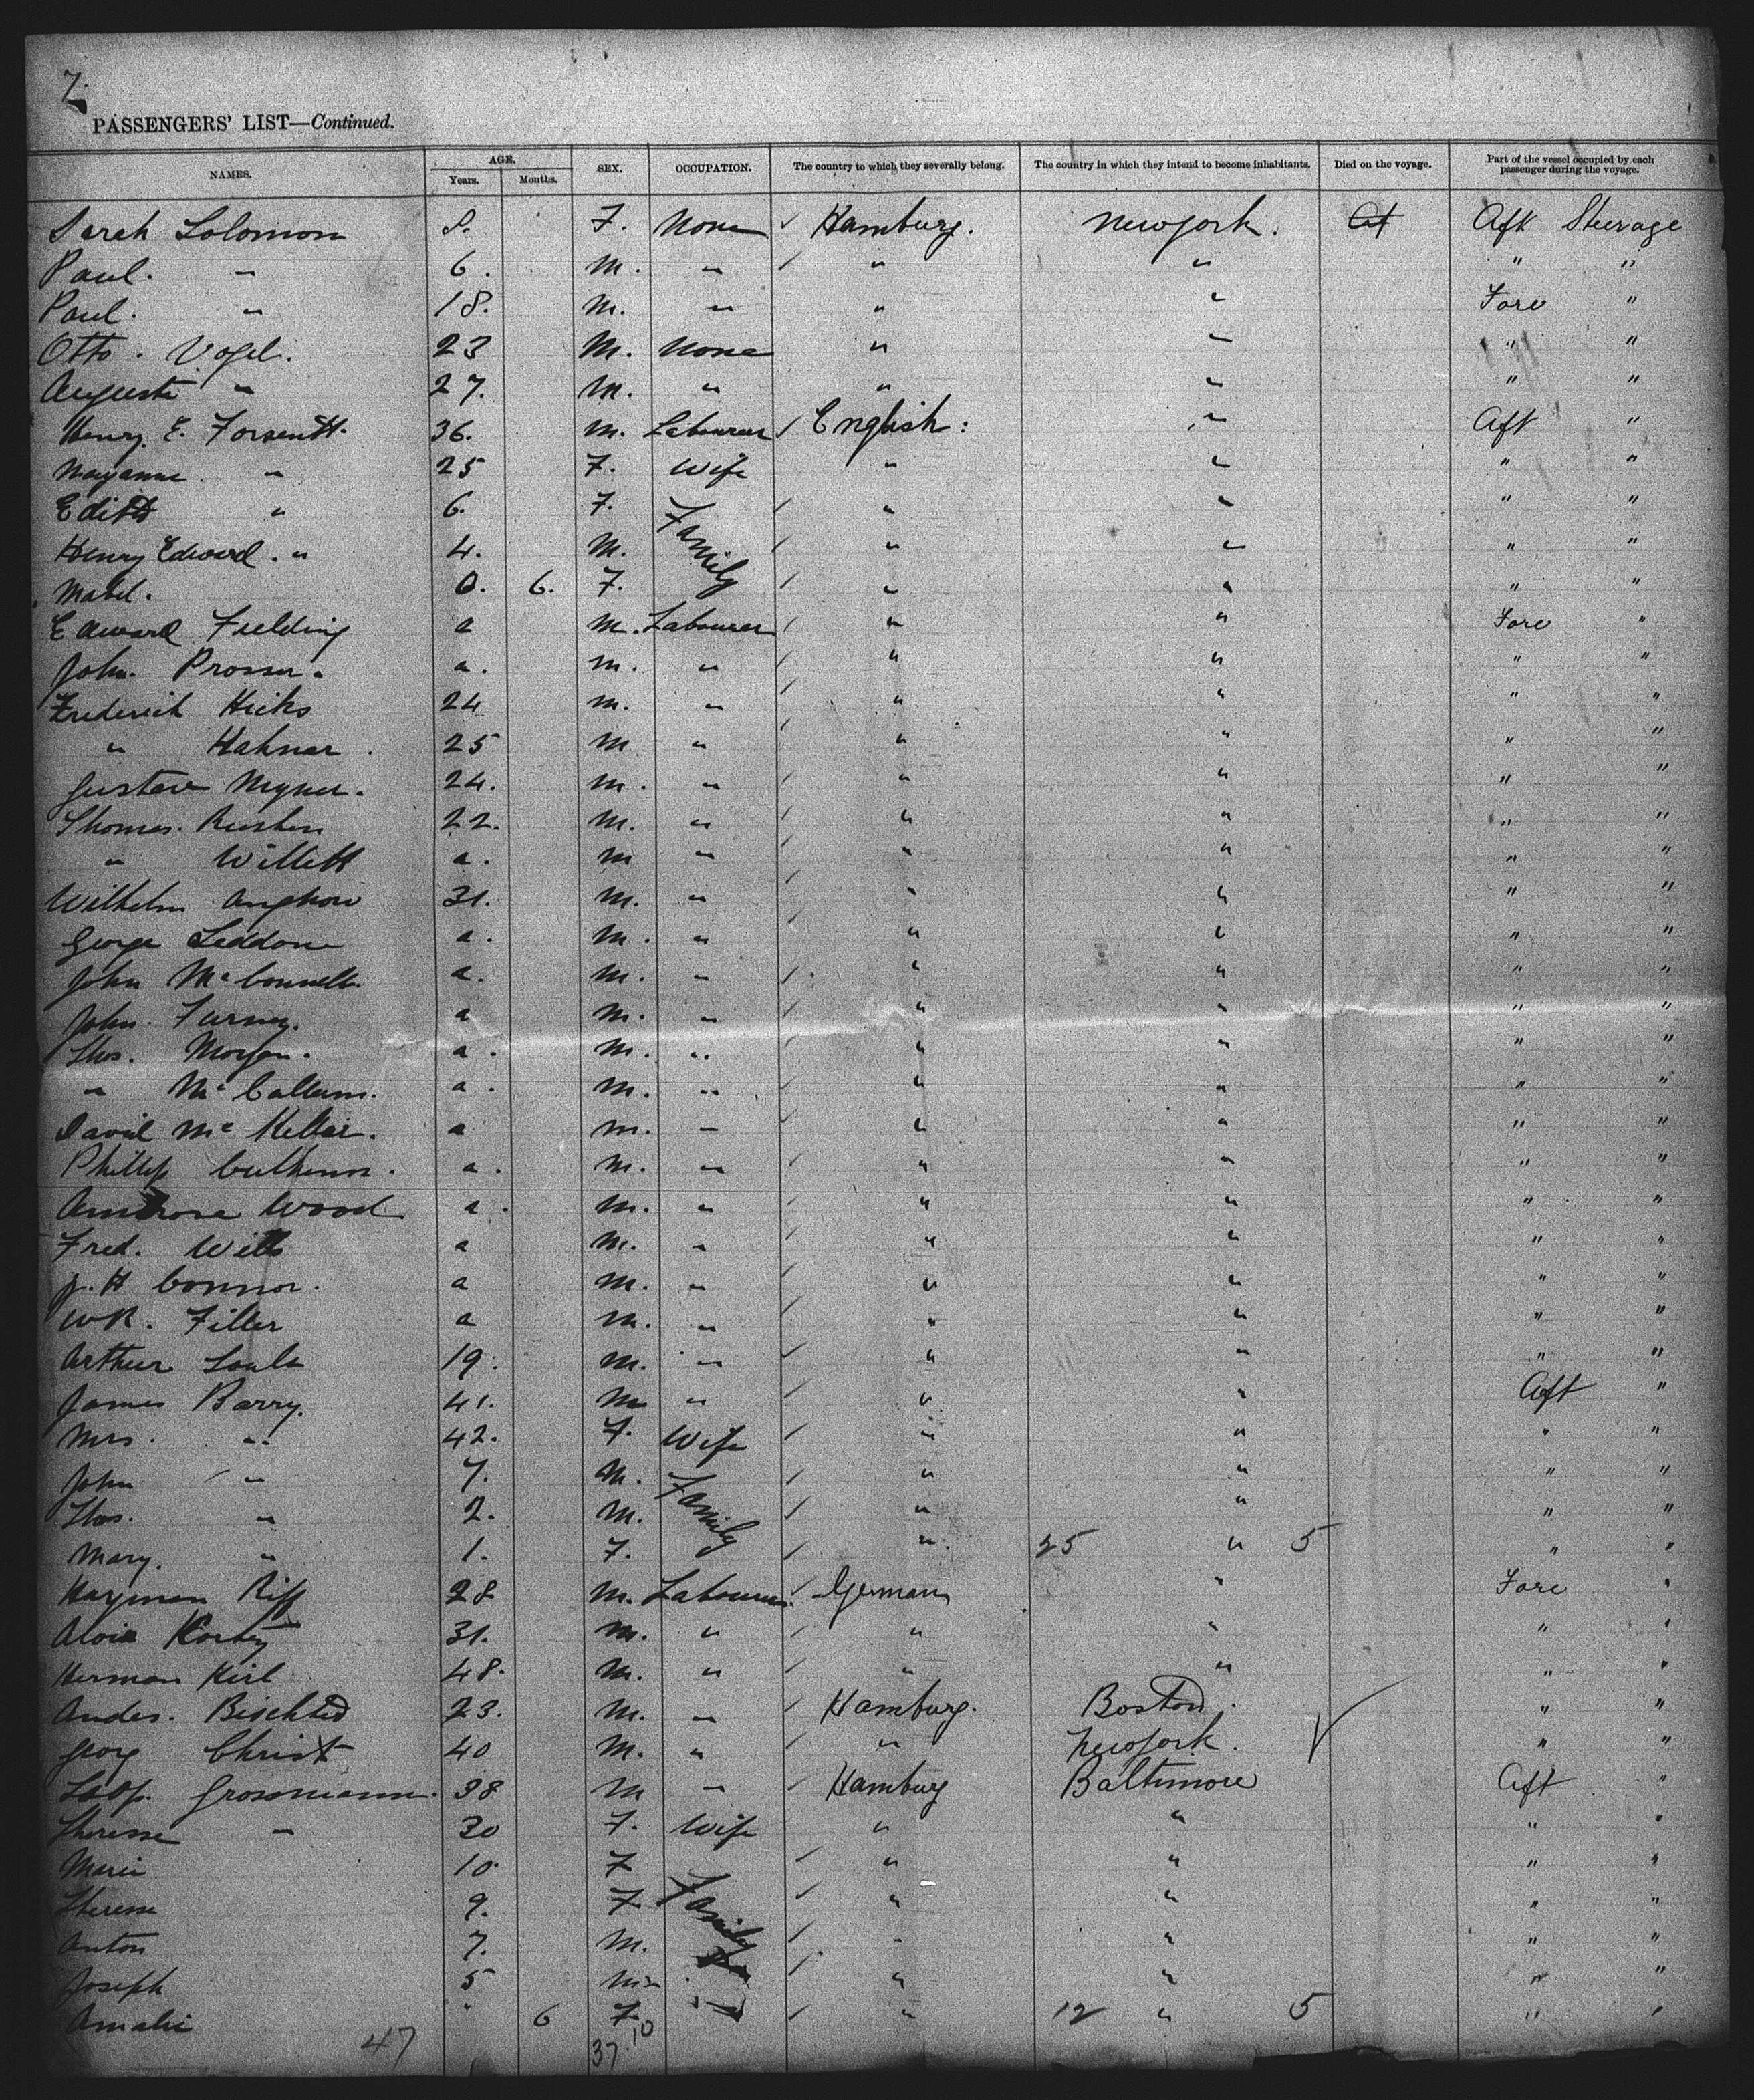 7.
PASSENGERS' LIST—Continued.
NAMES. AGE. Years. Months. SEX. OCCUPATION. The country to which they severally belong. The country in which they intend to become inhabitants. Died on the voyage. Part of the vessel occupied by each passenger during the voyage.
Sarah Solomon 8. F. None Hamburg. New York. Aft Steerage
Paul. " 6. M. " " " " "
Paul. " 18. M. " " " Fore "
Otto. Vogel. 23 M. None " " " "
Auguste " 27. M. " " " " "
Henry. E. 36. M. Labourer English: " Aft "
" 25 F. Wife " " " "
Edith " 6. F. Family " " " "
Henry Edward. " 4. M. " " " "
Mabel. 0. 6. F. " " " "
Edward Fielding a M. Labourer " " Fore "
John. Prosser. a. M. " " " " "
Frederick Hicks 24 M. " " " " "
" 25 M " " " " "
Gustave 24. M. " " " " "
Thomas. 22. M. " " " " "
" Willett a. M " " " " "
Wilhelm 31. M. " " " " "
George Leddon a. M. " " " " "
John McConnell. a. M. " " " " "
John. Furney. a M. " " " " "
Thos. Morgan. a. M. " " " " "
" McCallum. a. M. " " " " "
David McKellar. a M. " " " " "
Phillip a. M. " " " " "
Ambrose Wood a. M. " " " " "
Fred. Wills a M. " " " " "
J. H Connor. a M. " " " " "
WR. Filler a M. " " " " "
Arthur 19. M. " " " " "
James Barry. 41. M " " " Aft "
Mrs. " 42. F. Wife " " " "
John " 7. M. Family " " " "
Thos. " 2. M. " " " "
Mary. " 1. F. " 25 " 5 " "
Hayman Riff 28 M. Labourer. German " Fore "
Alois 31. M. " " " " "
Herman Kirl 48. M. " " " " "
Andes. 23. M. " Hamburg. Boston. " "
Georg Christ 40 M. " " New York. " "
Grossmann. 38 M " Hamburg Baltimore Aft "
Therese " 30 F. Wife " " " "
Marie 10 F Family " " " "
Therese 9. F " " " "
Anton 7. M. " " " "
Joseph 5 M " " " "
Amalie " 6 F. " 12 " 5 " "
47 37 10